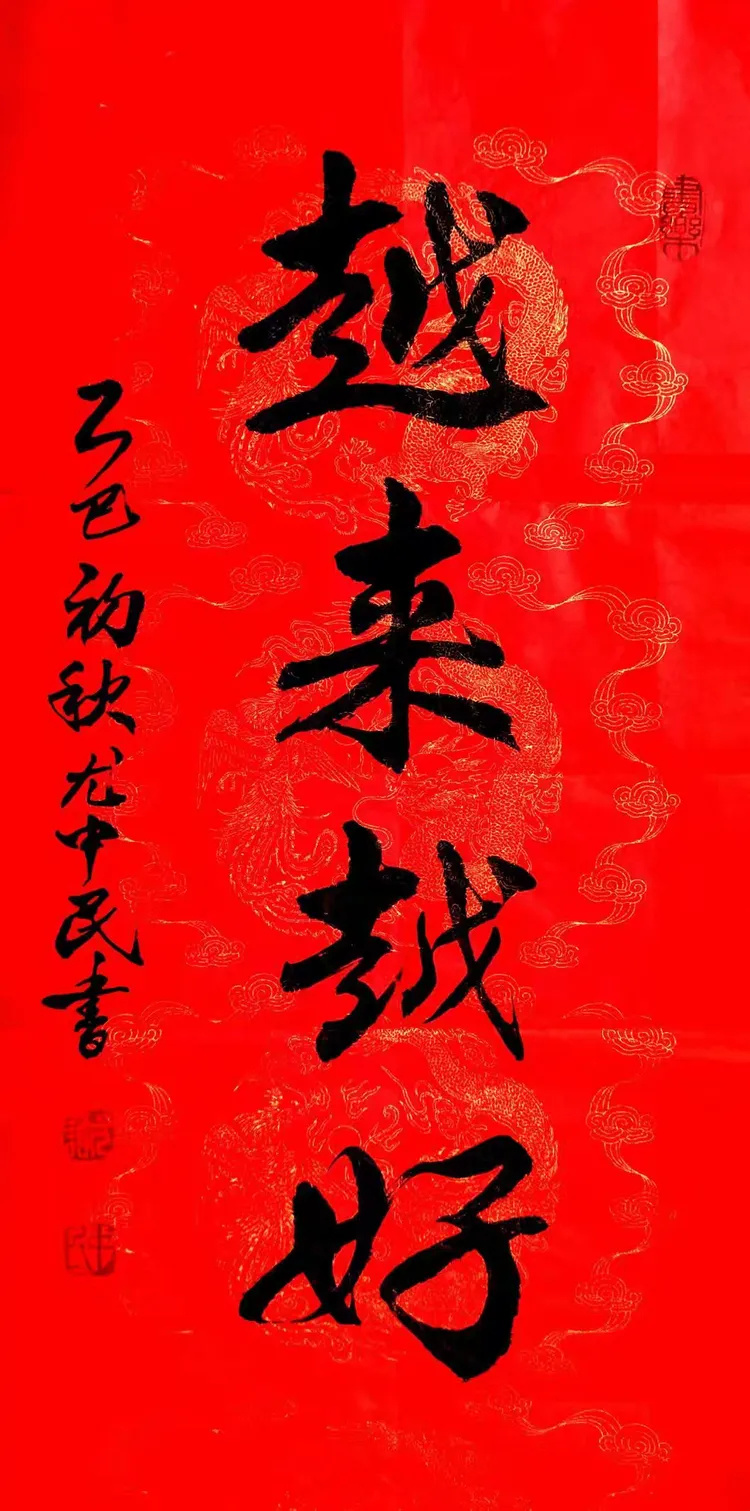 越来越好
乙巳初秋尤中民书